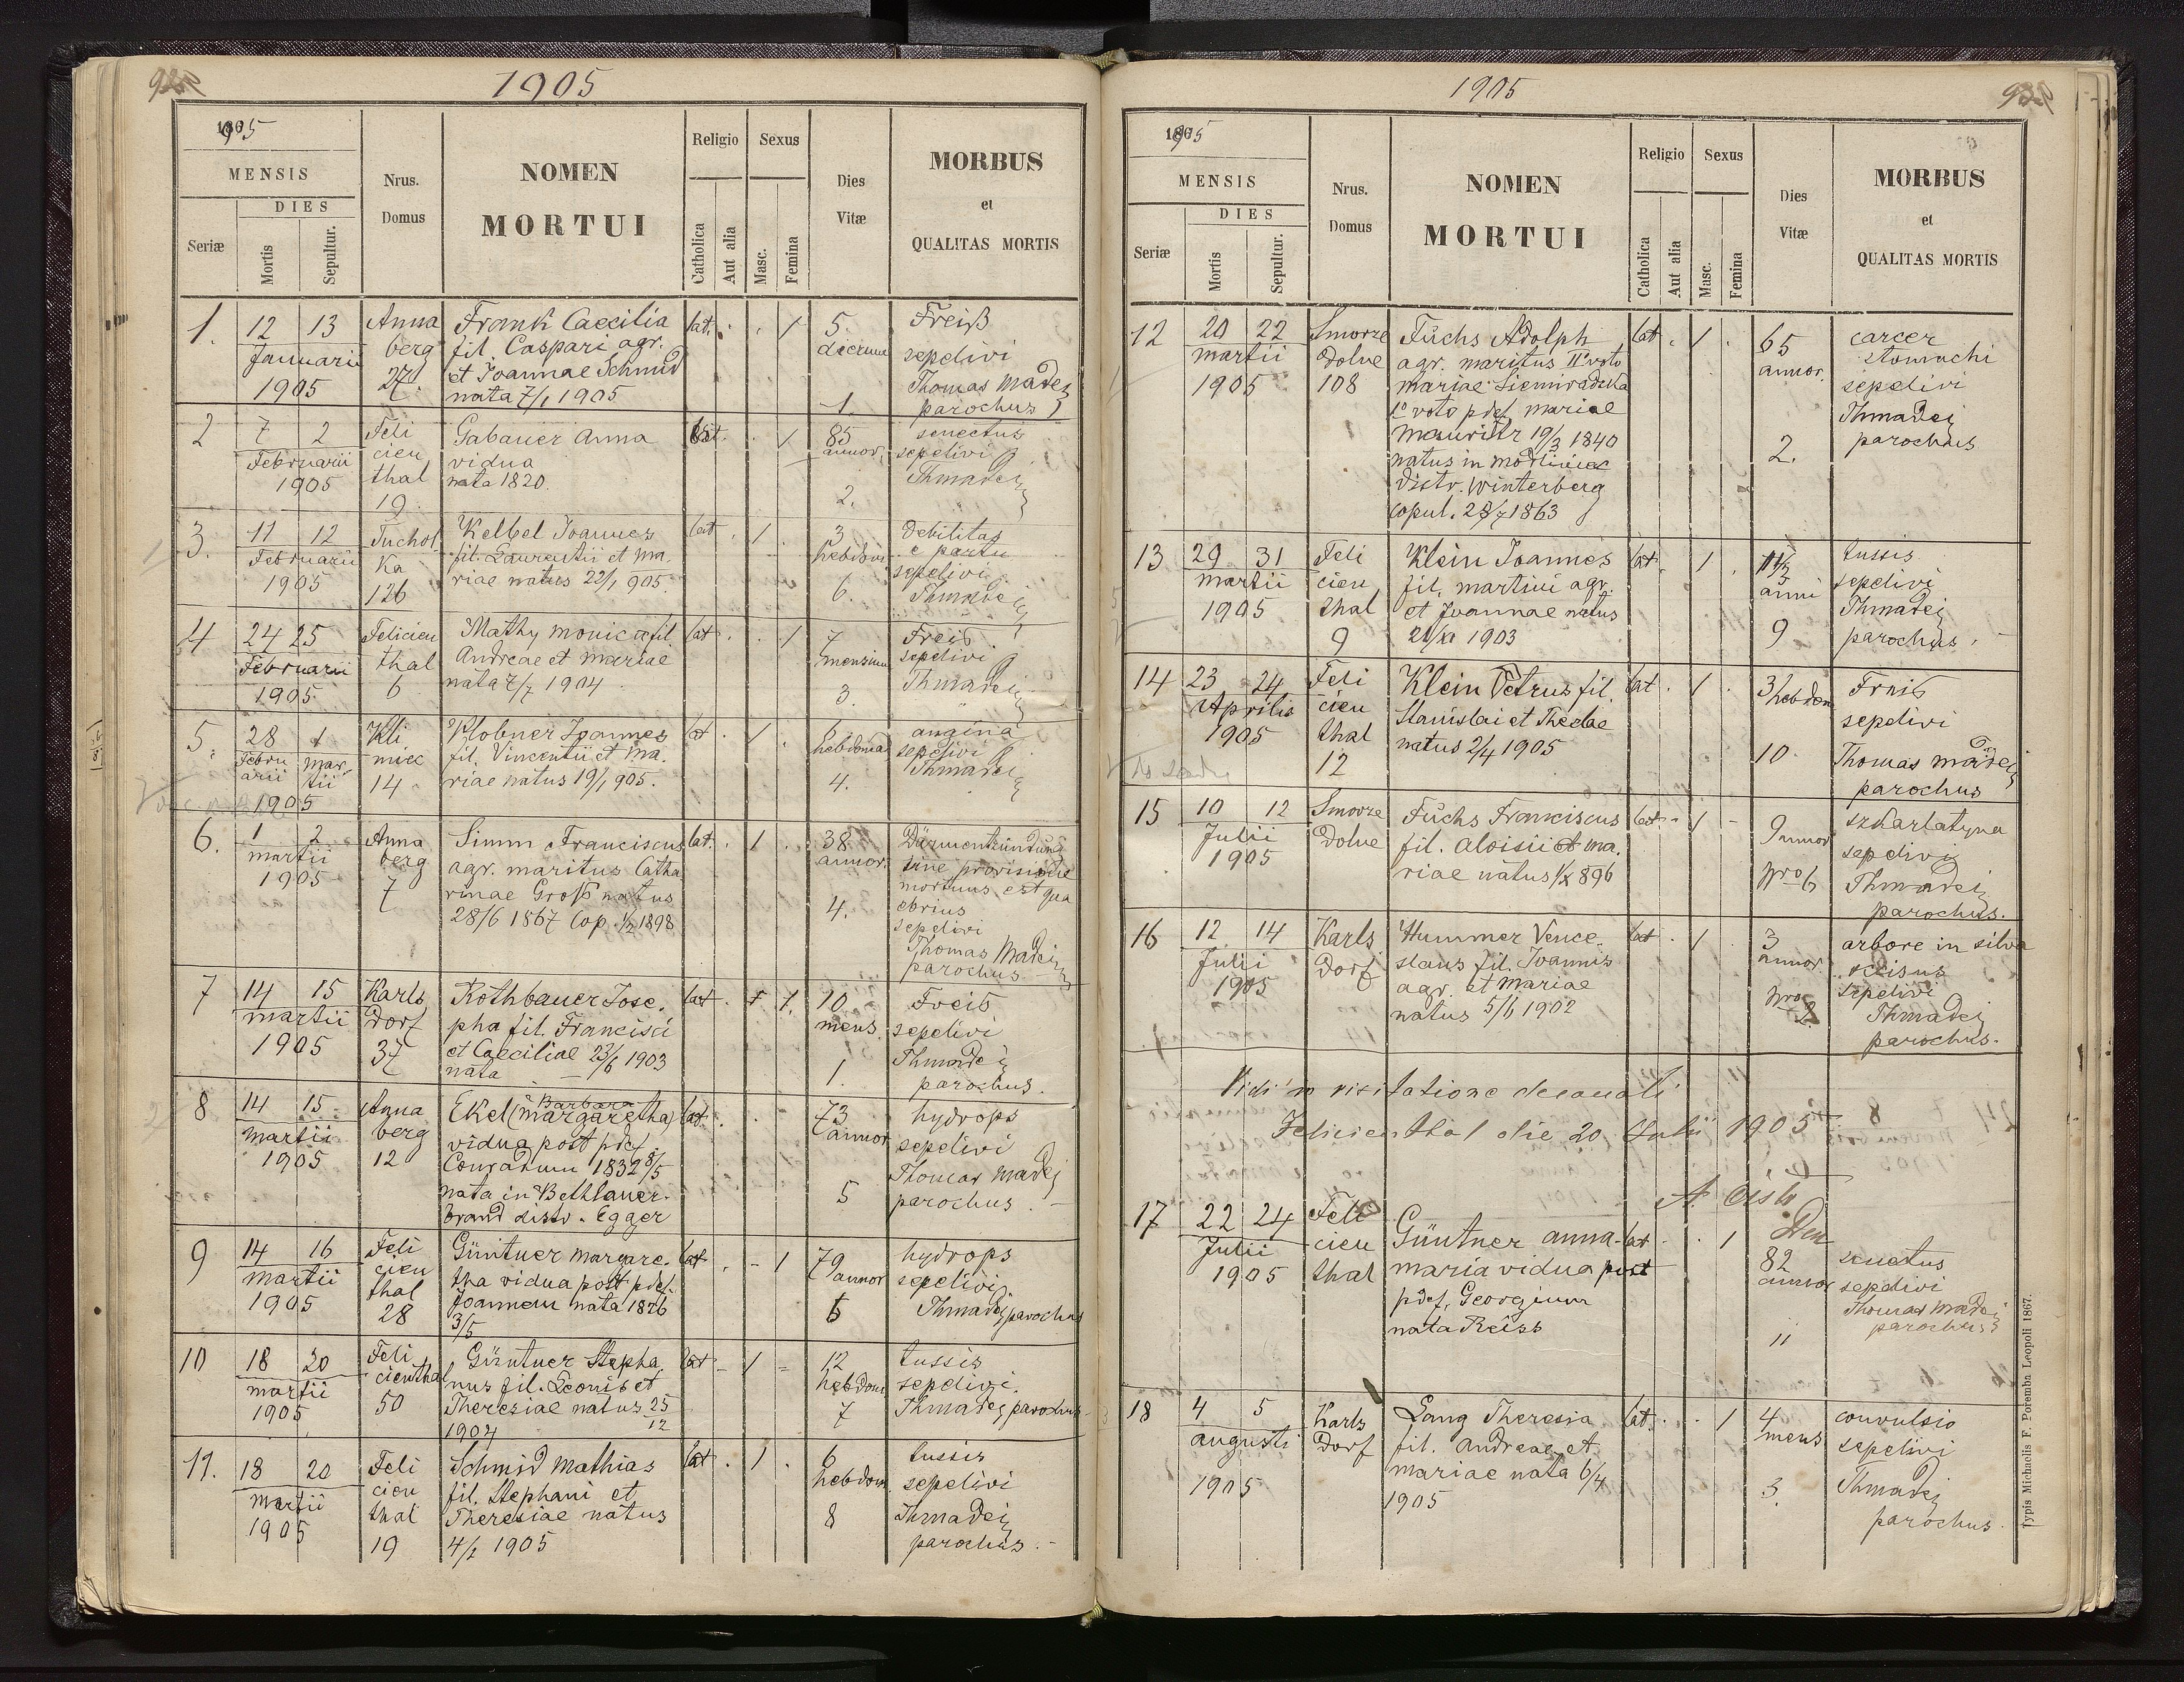 1905
1905
MENSIS
DIES
Seriæ
Mortis
Sepultur.
Nrus.
Domus
NOMEN
MORTUI
Religio
Catholica
Aut alia
Sexus
Masc.
Femina
Dies
Vitæ
MORBUS
et
QUALITAS MORTIS
1. 12 13 Anna Frank Caecilia lat. 1 5 Freiß
Januarii berg fil. Caspari agr. dierum sepelivi
1905 27. et Joannae Schmid Thomas Madej
nata 7/1 1905 1. parochus
2 7 2 Feli Gabauer Anna lat. 1 85 senectus
Februarii cien vidua annor. sepelivi
1905 thal nata 1820. 2. Thmadej
19.
3. 11 12 Tuchol Kelbel Joannes lat 1 3 debilitas
Februarii ka fil. Laurentii et Ma. e partu
1905 126 riae natus 22/1 905. 6. sepelivi
Thmadej
4 24 25 Felicien Mathy Monica fil lat 1 7 Freis
Februarii thal Andreae et Mariae mensium sepelivi
1905 6 nata 7/7 1904 3. Thmadej
5. 28 1 Kli Klobner Joannes lat 1 6 angina
Febru Mar. miec fil. Vincentii et Ma. hebdoma sepelivi
arii tii 14 riae natus 19/1 905. 4. Thmadej
1905
6. 1 2 Anna Simm Franciscus lat. 1 38 Därmentzündung
martii berg agr. maritus Catha annor. sine provisione
1905 7 rinae Groß natus mortuus est qua
28/6 1867 Cop. 1/2 1898 4. ebrius
sepelivi
Thomas Madej
parochus
7 14 15 Karls Rothbauer Jose. lat 1. 10 Freis
martii dorf pha fil. Francisci mens. sepelivi
1905 37 et Caeciliae 23/6 1903 Thmadej
nata 1. parochus.
8 14 15 Anna Barbara
Ekel (Margaretha) lat. 73 hydrops
Martii berg vidua post pdef annor sepelivi
1905 12 Conradum 1832 8/5 Thomas Madej
nata in Bethlauer- 5 parochus.
brand distr. Egger
9 14 16 Feli Güntner Margare. lat 1 79 hydrops
martii cien tha vidua post pdef. annor sepelivi
1905 thal Joannem nata 1826 6 Thmadej parochus
28 3/5
10 18 20 Feli Güntner Stepha lat 1 12 tussis
martii cienthal nus fil. Leonis et hebdom sepelivi.
1905 50 Theresiae natus 25 7 Thmadej parochus
1904 12
11. 18 20 Feli Schmid Mathias lat 1 6 tussis
Martii cien fil. Stephani et hebdom sepelivi
1905 thal Theresiae natus 8 Thmadej
19 4/2 1905 parochus.
1905
1905
MENSIS
DIES
Seriæ
Mortis
Sepultur.
Nrus.
Domus
NOMEN
MORTUI
Religio
Catholica
Aut alia
Sexus
Masc.
Femina
Dies
Vitæ
MORBUS
et
QUALITAS MORTIS
12 20 22 Smorze Fuchs Adolph lat 1 65 carcer
martii dolne agr. maritus II voto annor. stomachi
1905 108 Mariae Siemiradzka sepelivi
Iº voto pdef Mariae Thmadej
19/3 1840 2. parochus
natus in
distr. Winterberg
copul. 28/7 1863
13 29 31 Feli Klein Joannes lat. 1 1 1/2 tussis
martii cien fil. Martini agr. anni sepelivi
1905 thal et Joannae natus Thmadej
9 21/XI 1903 9 parochus.
14 23 24 Feli Klein Petrus fil. lat 1 3 hebdom Frais
Aprilis cien Stanislai et Theclae sepelivi
1905 thal natus 2/4 1905 10 Thomas Madej
12 parochus
15 10 12 Smorze Fuchs Franciscus lat 1 9 annor szkarlatyna
Julii dolne fil. Aloisii et Ma. sepelivi
1905 riae natus 1/X 896 Nro 6 Thmadej
parochus.
16 12 14 Karls Hummer Vence. lat 1 3 arbore in silva
Julii dorf slaus fil. Joannis annor. occisus
1905 agr. et Mariae sepelivi
natus 5/6 1902 Nro 2 Thmadej
parochus.
Vidi in visitatione decanali
Felicienthal die 20 Julii 1905
17 22 24 Feli Güntner Anna- lat 1 82 senectus
Julii cien Maria vidua post annor sepelivi
1905 thal pdef. Georgium Thomas Madej
nata Reiss 11 parochus
18 4 5 Karls Lang Theresia lat. 1 4 convulsio
augusti dorf fil. Andreae et mens sepelivi
1905 Mariae nata 6/4 3. Thmadej
1905 parochus.
Typis Michaelis F. Poremba Leopoli 1867.